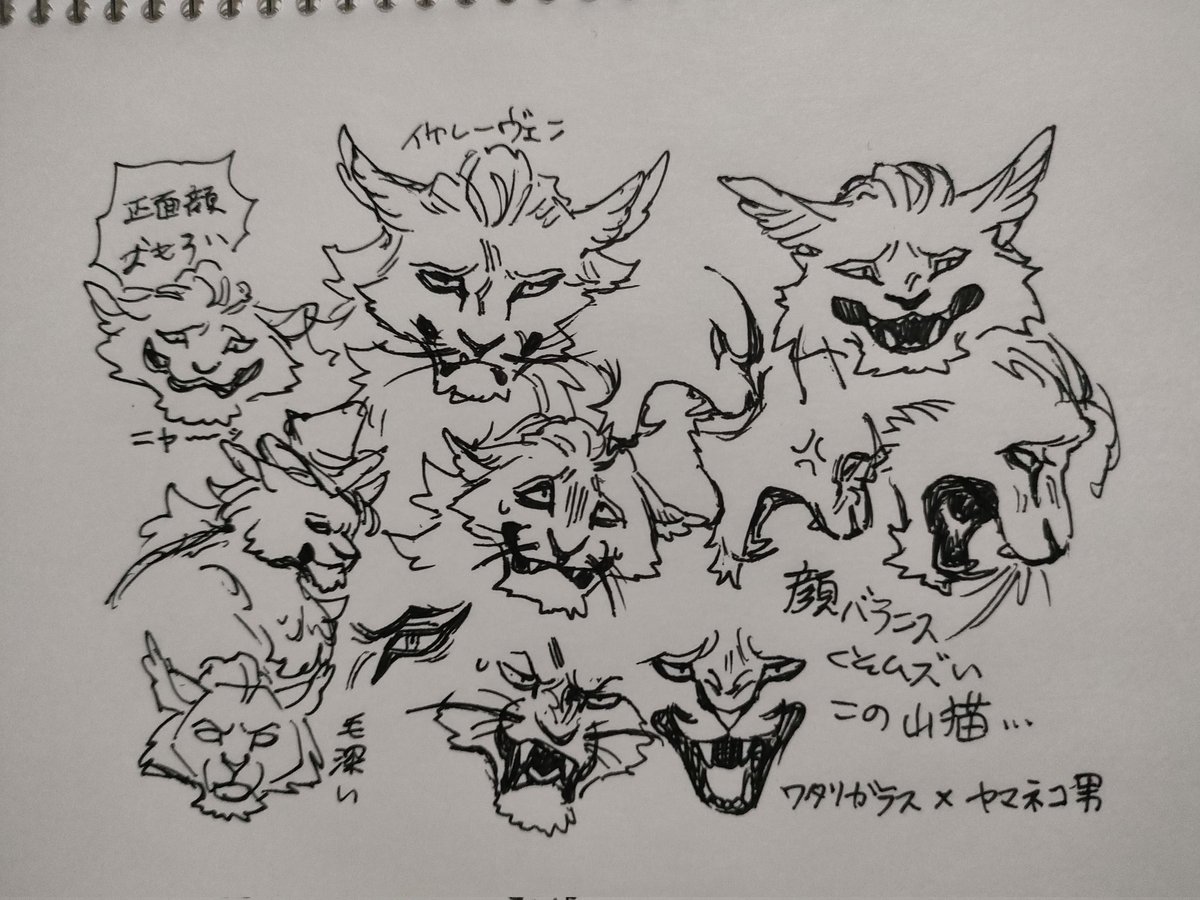 イケレーヴェン
正面顔
おもろい
ニャーン
毛深い
顔バランス
くそムズい
この山猫…
ワタリガラス×ヤマネコ男